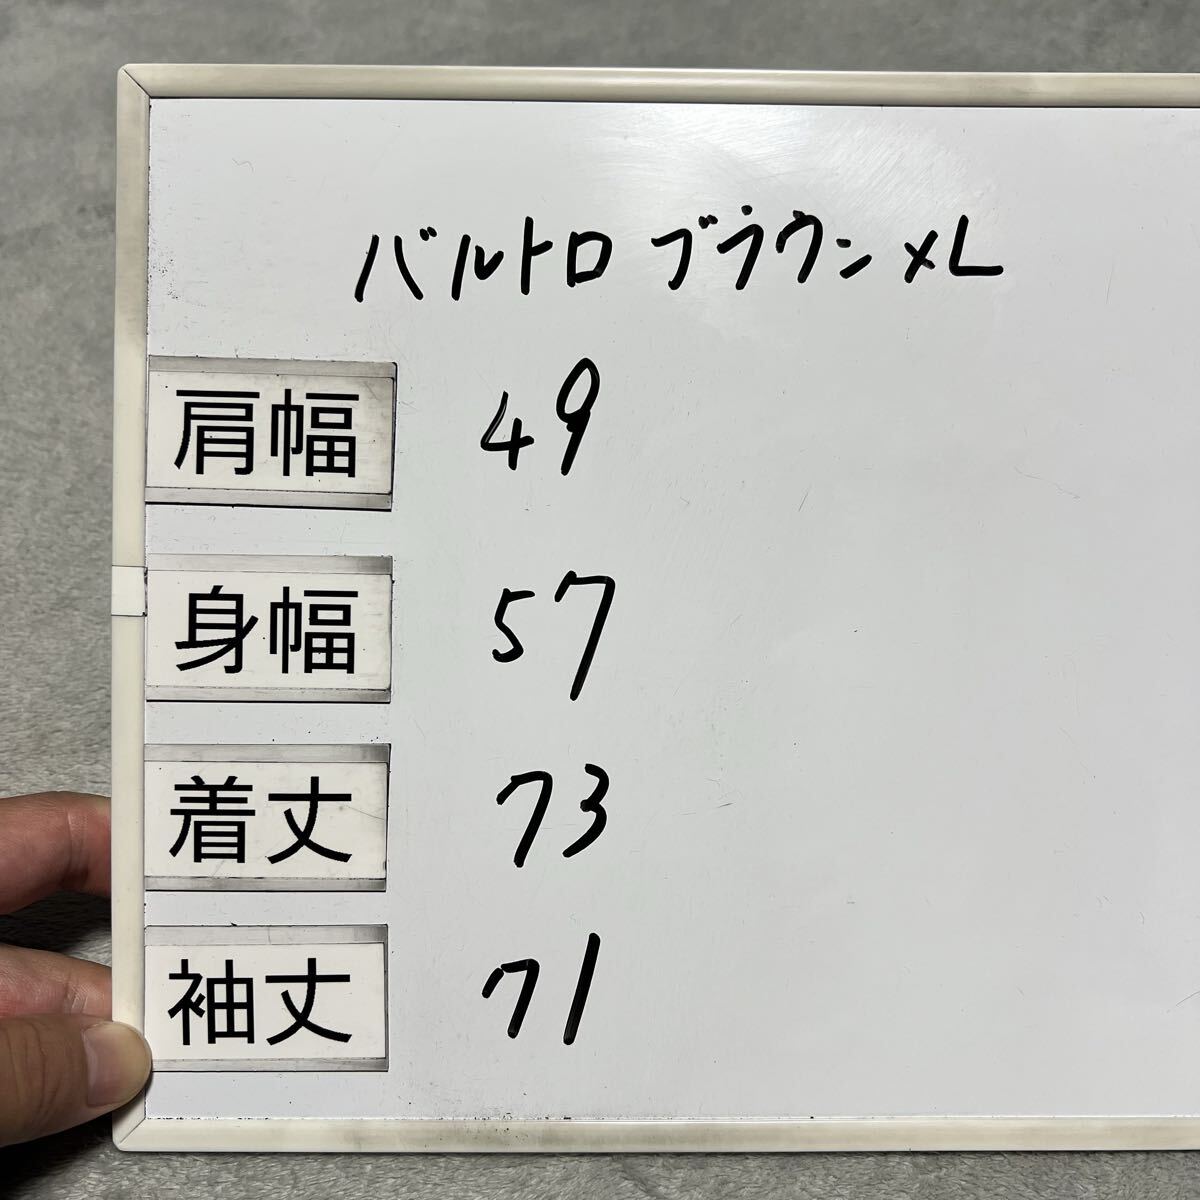 バルトロ ブラウン XL
肩幅 49
身幅 57
着丈 73
袖丈 71